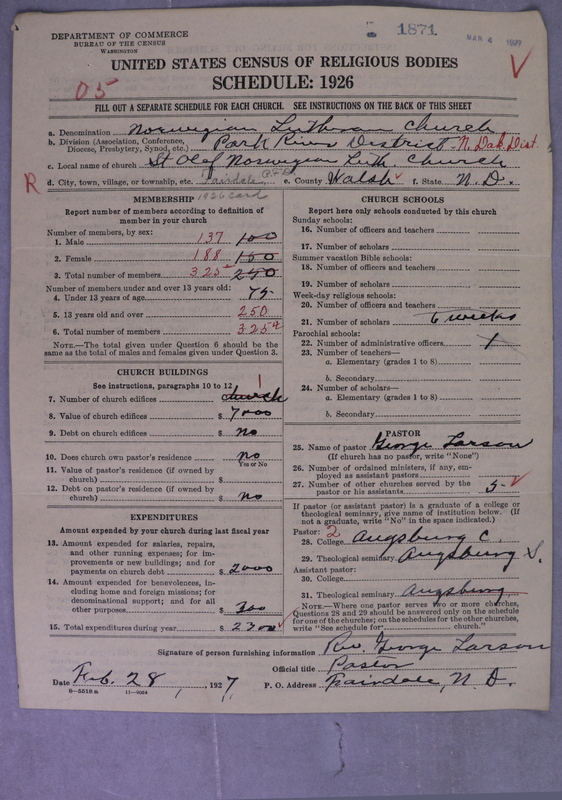 DEPARTMENT OF COMMERCE
BUREAU OF THE CENSUS
WASHINGTON
1871
MAR 4 1927
UNITED STATES CENSUS OF RELIGIOUS BODIES
SCHEDULE: 1926
05
FILL OUT A SEPARATE SCHEDULE FOR EACH CHURCH. SEE INSTRUCTIONS ON THE BACK OF THIS SHEET
a. Denomination Norwegian Lutheran Church
b. Division (Association, Conference, Diocese, Presbytery, Synod, etc.) Park River District N. Dak. Dist.
c. Local name of church St Olaf Norwegian Luth. Church
R d. City, town, village, or township, etc. Fairdale e. County Walsh f. State N. D.
1926 card
MEMBERSHIP
Report number of members according to definition of member in your church
Number of members, by sex:
1. Male 137 100
2. Female 188 150
3. Total number of members 325 250
Number of members under and over 13 years old:
4. Under 13 years of age 75
5. 13 years old and over 250
6. Total number of members 325
NOTE.—The total given under Question 6 should be the same as the total of males and females given under Question 3.
CHURCH BUILDINGS
See instructions, paragraphs 10 to 12
7. Number of church edifices church 1
8. Value of church edifices $ 7000
9. Debt on church edifices $ no
10. Does church own pastor's residence no
Yes or No
11. Value of pastor's residence (if owned by church) $
12. Debt on pastor's residence (if owned by church) $ no
EXPENDITURES
Amount expended by your church during last fiscal year
13. Amount expended for salaries, repairs, and other running expenses; for improvements or new buildings; and for payments on church debt $ 2000
14. Amount expended for benevolences, including home and foreign missions; for denominational support; and for all other purposes $ 300
15. Total expenditures during year $ 2300
CHURCH SCHOOLS
Report here only schools conducted by this church
Sunday schools:
16. Number of officers and teachers
17. Number of scholars
Summer vacation Bible schools:
18. Number of officers and teachers
19. Number of scholars
Week-day religious schools:
20. Number of officers and teachers
21. Number of scholars 6 weeks
Parochial schools:
22. Number of administrative officers 1
23. Number of teachers—
a. Elementary (grades 1 to 8)
b. Secondary
24. Number of scholars—
a. Elementary (grades 1 to 8)
b. Secondary
PASTOR
25. Name of pastor George Larson
(If church has no pastor, write "None")
26. Number of ordained ministers, if any, employed as assistant pastors
27. Number of other churches served by the pastor or his assistants 5
If pastor (or assistant pastor) is a graduate of a college or theological seminary, give name of institution below. (If not a graduate, write "No" in the space indicated.)
Pastor: 2
28. College Augsburg C.
29. Theological seminary Augsburg S.
Assistant pastor:
30. College
31. Theological seminary Augsburg
NOTE.—Where one pastor serves two or more churches, Questions 28 and 29 should be answered only on the schedule for one of the churches; on the schedules for the other churches, write "See schedule for church."
Signature of person furnishing information Rev. George Larson
Official title Pastor
Date Feb. 28, 1927 P. O. Address Fairdale, N. D.
8—5518a 11—9054